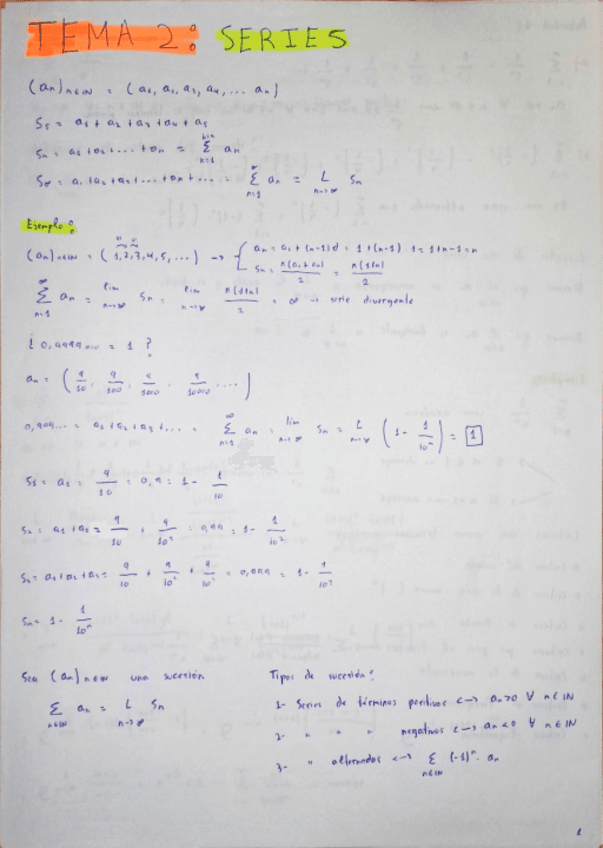 TEMA 2: SERIES
(an)n∈ℕ = (a1, a2, a3, a4, ... an)
S5 = a1 + a2 + a3 + a4 + a5
Sn = a1 + a2 + ... + an = Σ an n=1
S∞ = a1 + a2 + a3 + ... + an + ... = ∞ Σ n=1 an = L n→∞ Sn
Ejemplo:
(an)n∈ℕ = (1, 2, 3, 4, 5, ...) → { an = a1 + (n-1)d = 1 + (n-1) 1 = 1+n-1 = n
Sn = n(a1+an)/2 = n(1+n)/2
∞ Σ n=1 an = lim n→∞ Sn = lim n→∞ n(1+n)/2 = ∞ → serie divergente
¿ 0,9999... = 1 ?
an = (9/10, 9/100, 9/1000, 9/10000, ...)
0,999... = a1 + a2 + a3 + ... = ∞ Σ n=1 an = lim n→∞ Sn = L n→∞ (1 - 1/10ⁿ) = 1
S1 = a1 = 9/10 = 0,9 = 1 - 1/10
S2 = a1 + a2 = 9/10 + 9/10² = 0,99 = 1 - 1/10²
S3 = a1 + a2 + a3 = 9/10 + 9/10² + 9/10³ = 0,999 = 1 - 1/10³
Sn = 1 - 1/10ⁿ
Sea (an)n∈ℕ una sucesión
Σ n∈ℕ an = L n→∞ Sn
Tipos de sucesión:
1- Series de términos positivos <-> an>0 ∀ n∈ℕ
2- " " " negativos <-> an<0 ∀ n∈ℕ
3- " alternadas <-> Σ n∈ℕ (-1)ⁿ · an
1